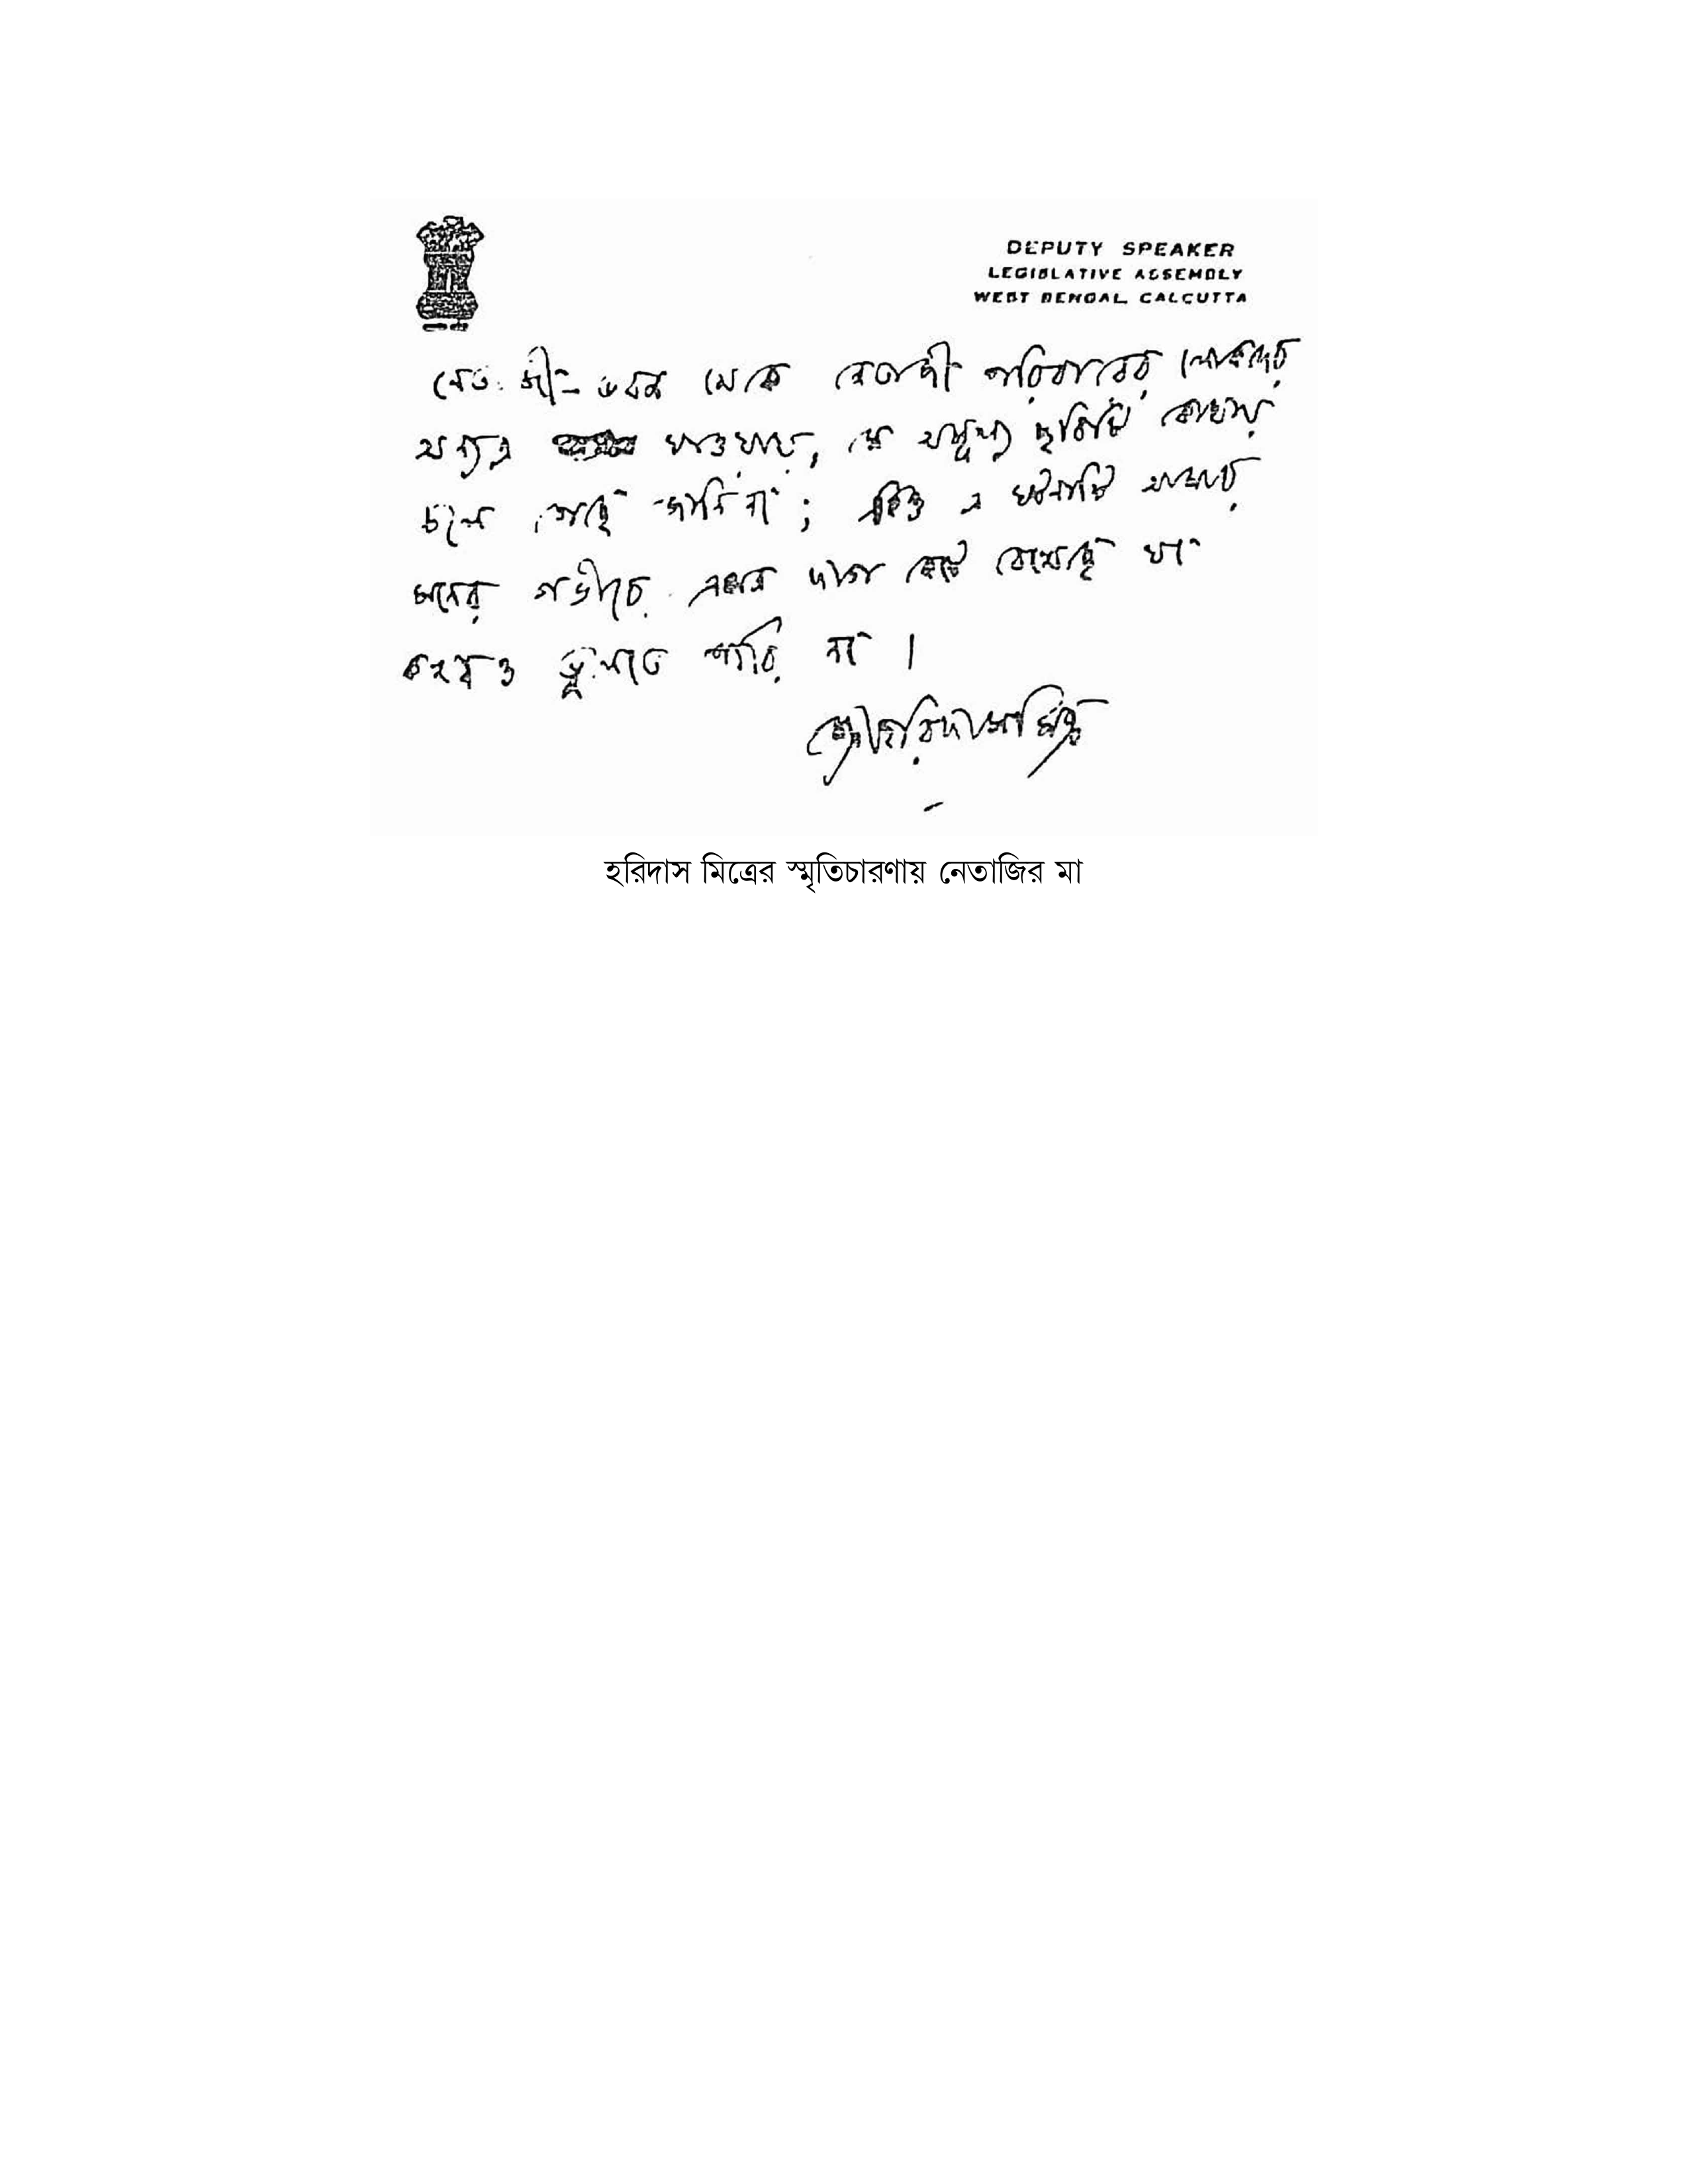 DEPUTY SPEAKER
LEGISLATIVE ASSEMBLY
WEST BENGAL, CALCUTTA
নেতাজী-ভবন থেকে নেতাজী পরিবারের লোকদের
অন্যত্র যাওয়ায়, সে অমূল্য ছবিটি কোথায়
চলে গেছে জানি না; কিন্তু এ ঘটনাটি আমার
মনের গভীরে এমন দাগ কেটে রেখেছে যা
কখনও ভুলতে পারি না।
শ্রীহরিদাস মিত্র
হরিদাস মিত্রের স্মৃতিচারণায় নেতাজির মা